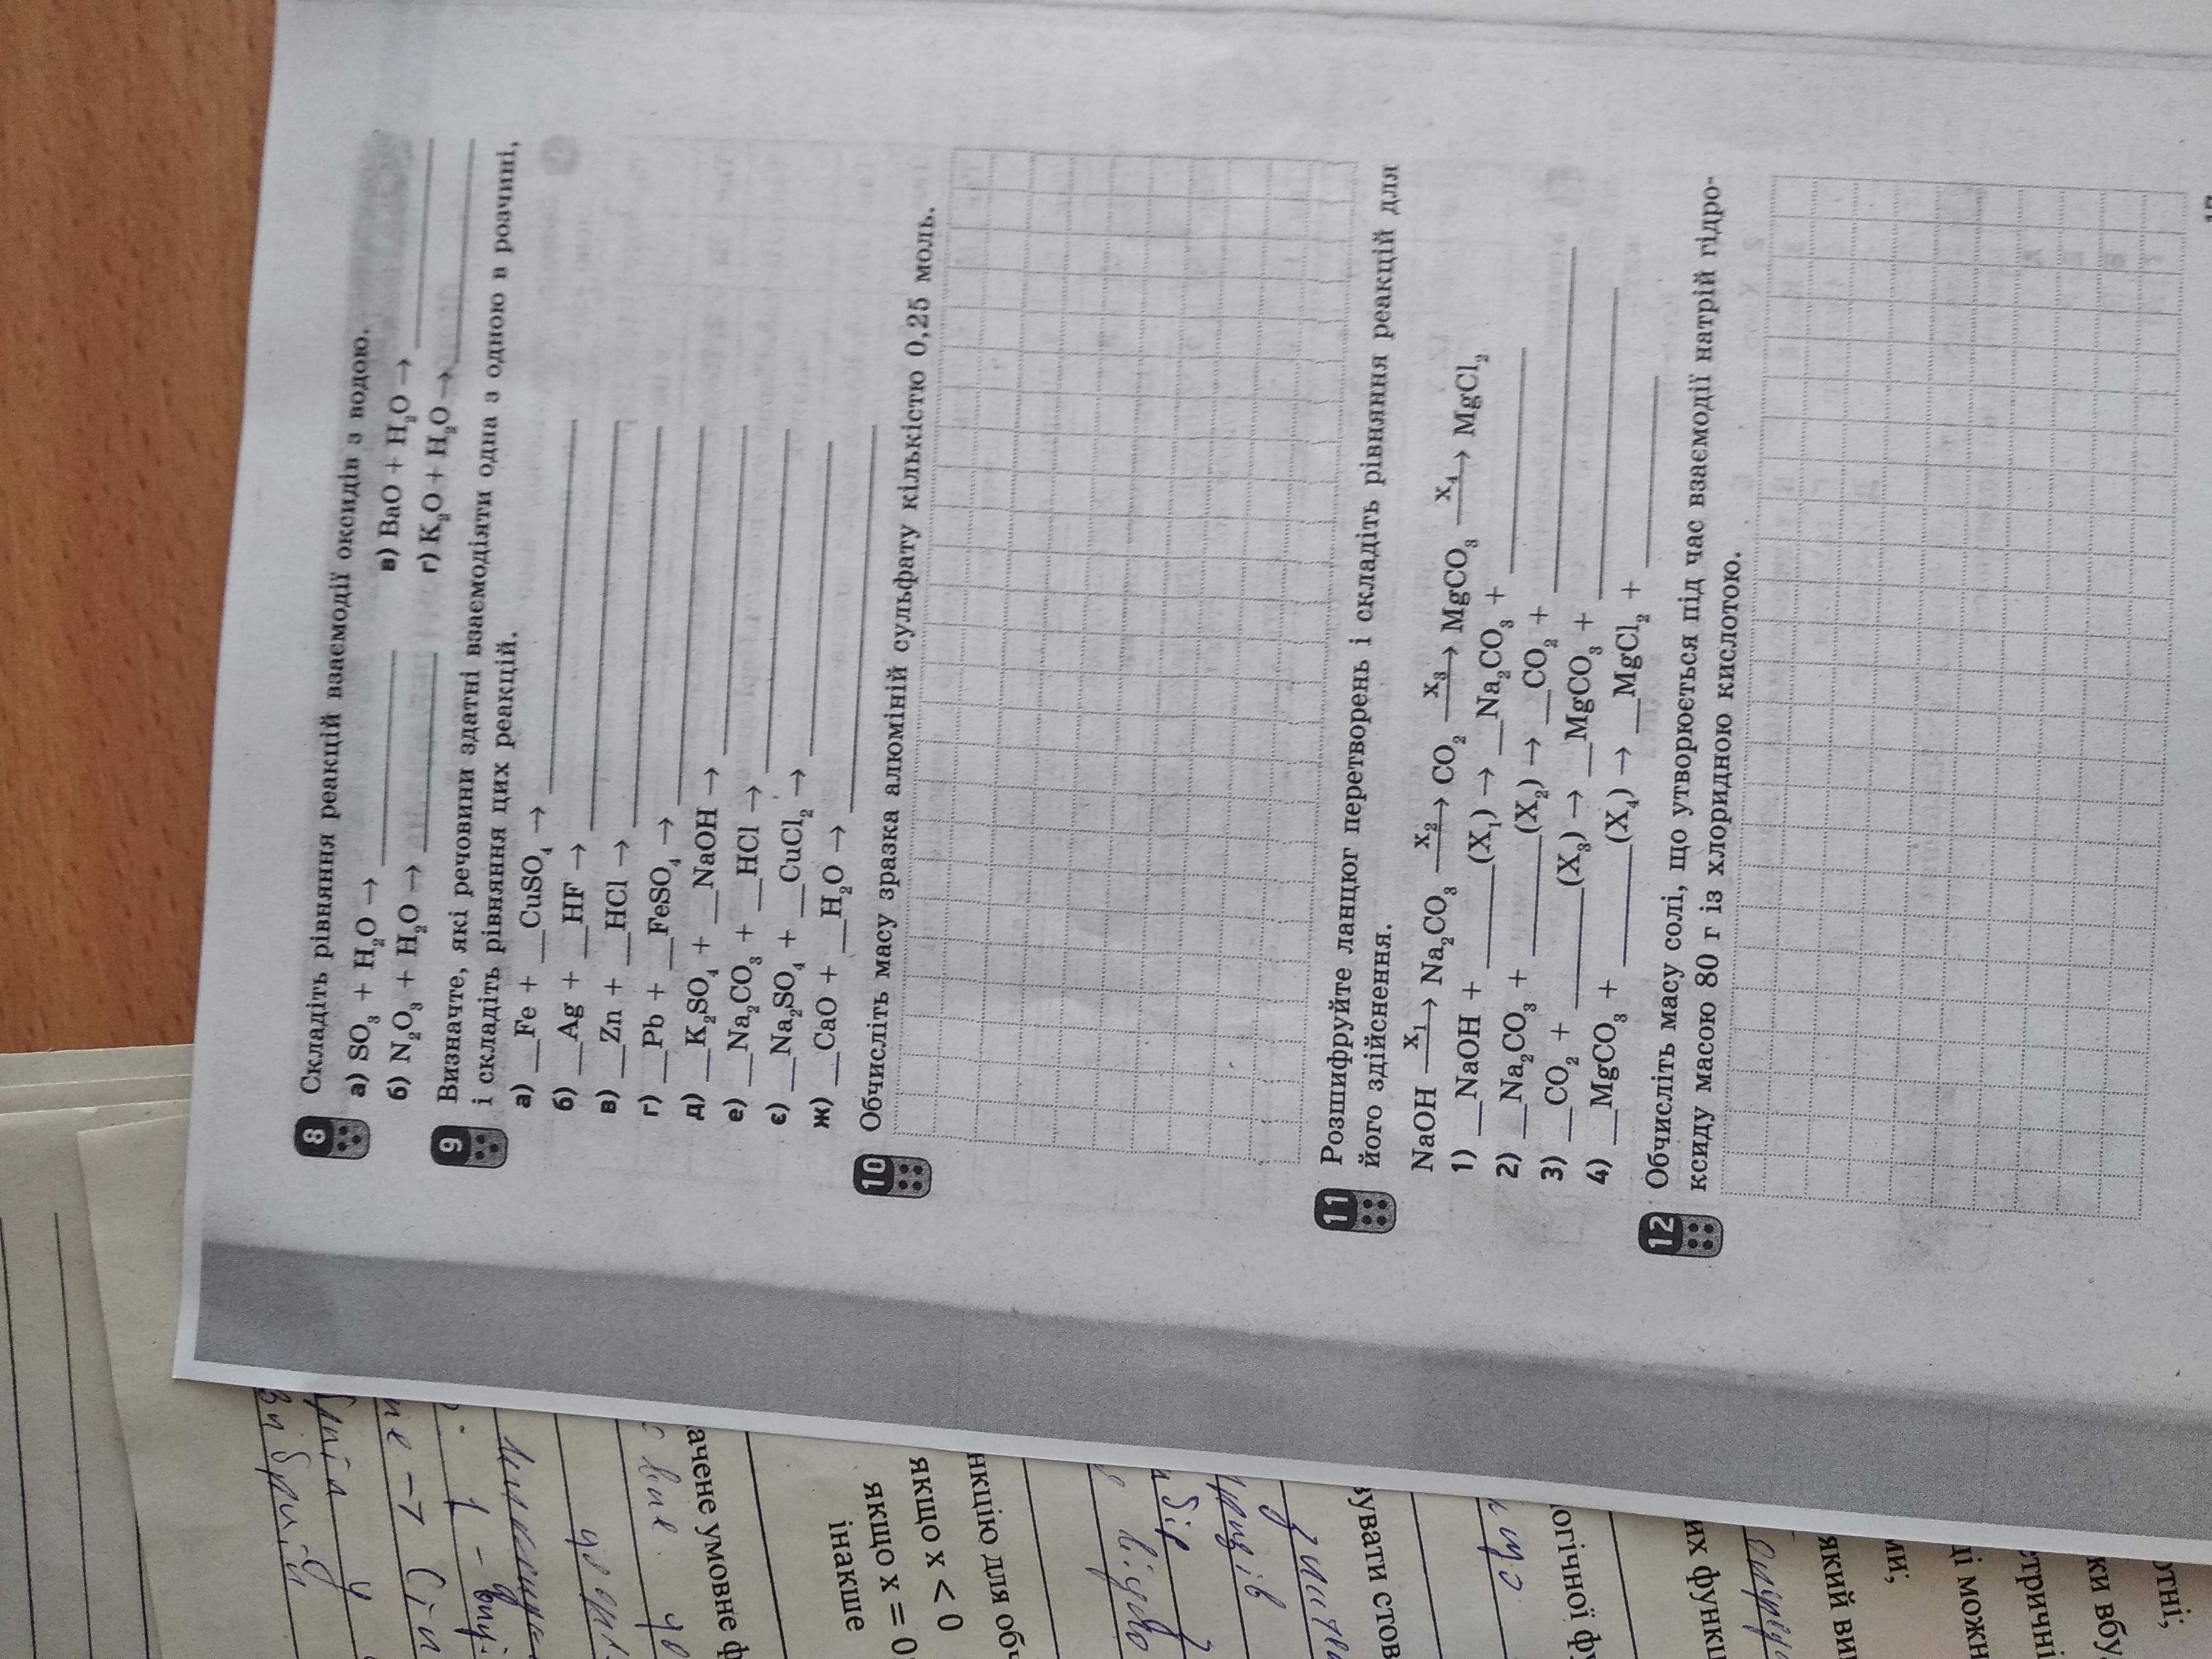 8 Складіть рівняння реакцій взаємодії оксидів з водою.
а) SO₃ + H₂O → ______ в) BaO + H₂O → ______
б) N₂O₃ + H₂O → ______ г) K₂O + H₂O → ______
9 Визначте, які речовини здатні взаємодіяти одна з одною в розчині,
і складіть рівняння цих реакцій.
а) __Fe + __CuSO₄ → ______
б) __Ag + __HF → ______
в) __Zn + __HCl → ______
г) __Pb + __FeSO₄ → ______
д) __K₂SO₄ + __NaOH → ______
е) __Na₂CO₃ + __HCl → ______
є) __Na₂SO₄ + __CuCl₂ → ______
ж) __CaO + __H₂O → ______
10 Обчисліть масу зразка алюміній сульфату кількістю 0,25 моль.
11 Розшифруйте ланцюг перетворень і складіть рівняння реакцій для
його здійснення.
NaOH —X₁→ Na₂CO₃ —X₂→ CO₂ —X₃→ MgCO₃ —X₄→ MgCl₂
1) __NaOH + ______(X₁) → __Na₂CO₃ + ______
2) __Na₂CO₃ + ______(X₂) → __CO₂ + ______
3) __CO₂ + ______(X₃) → __MgCO₃ + ______
4) __MgCO₃ + ______(X₄) → __MgCl₂ + ______
12 Обчисліть масу солі, що утворюється під час взаємодії натрій гідро-
ксиду масою 80 г із хлоридною кислотою.
ачене умовне ф
якщо x < 0
якщо x = 0
інакше
нкцію для об
увати стов
огічної фу
их функц
який ви
ми,
ді можн
стричні
жи вбу
отні,